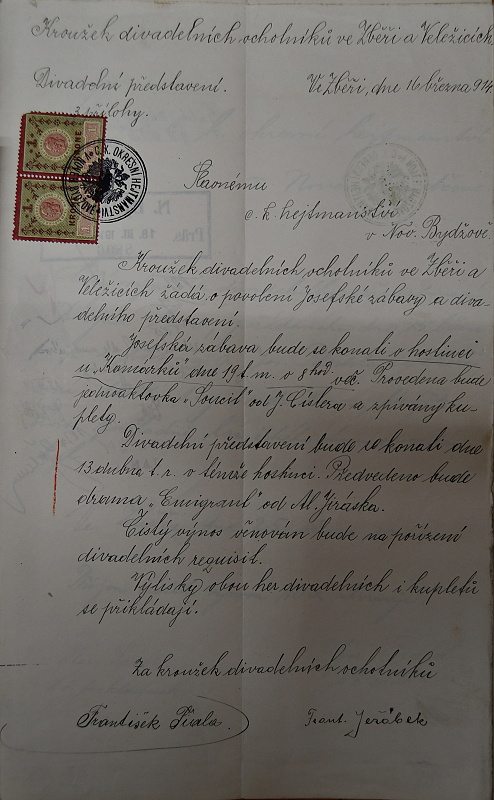 Kroužek divadelních ochotníků ve Zběři a Veležicích
Divadelní představení.
Ve Zběři, dne 16 března 914
3 přílohy.
Slavnému
c. k. hejtmanství
v Nov. Bydžově
Kroužek divadelních ochotníků ve Zběři a
Veležicích žádá o povolení Josefské zábavy a diva-
delního představení.
Josefská zábava bude se konati v hostinci
u „Komárků" dne 19 t. m. o 8 hod. več. Provedena bude
jednoaktovka „Soucit" od J. Císlera a zpívány ku-
plety.
Divadelní představení bude se konati dne
13 dubna t. r. v témže hostinci. Předvedeno bude
drama „Emigrant" od Al. Jiráska.
Čistý výnos věnován bude na pořízení
divadelních requisit.
Výlisky obou her divadelních i kupletů
se přikládají.
Za kroužek divadelních ochotníků
František
Frant. Jeřábek
C. K. OKRESNÍ HEJTMANSTVÍ